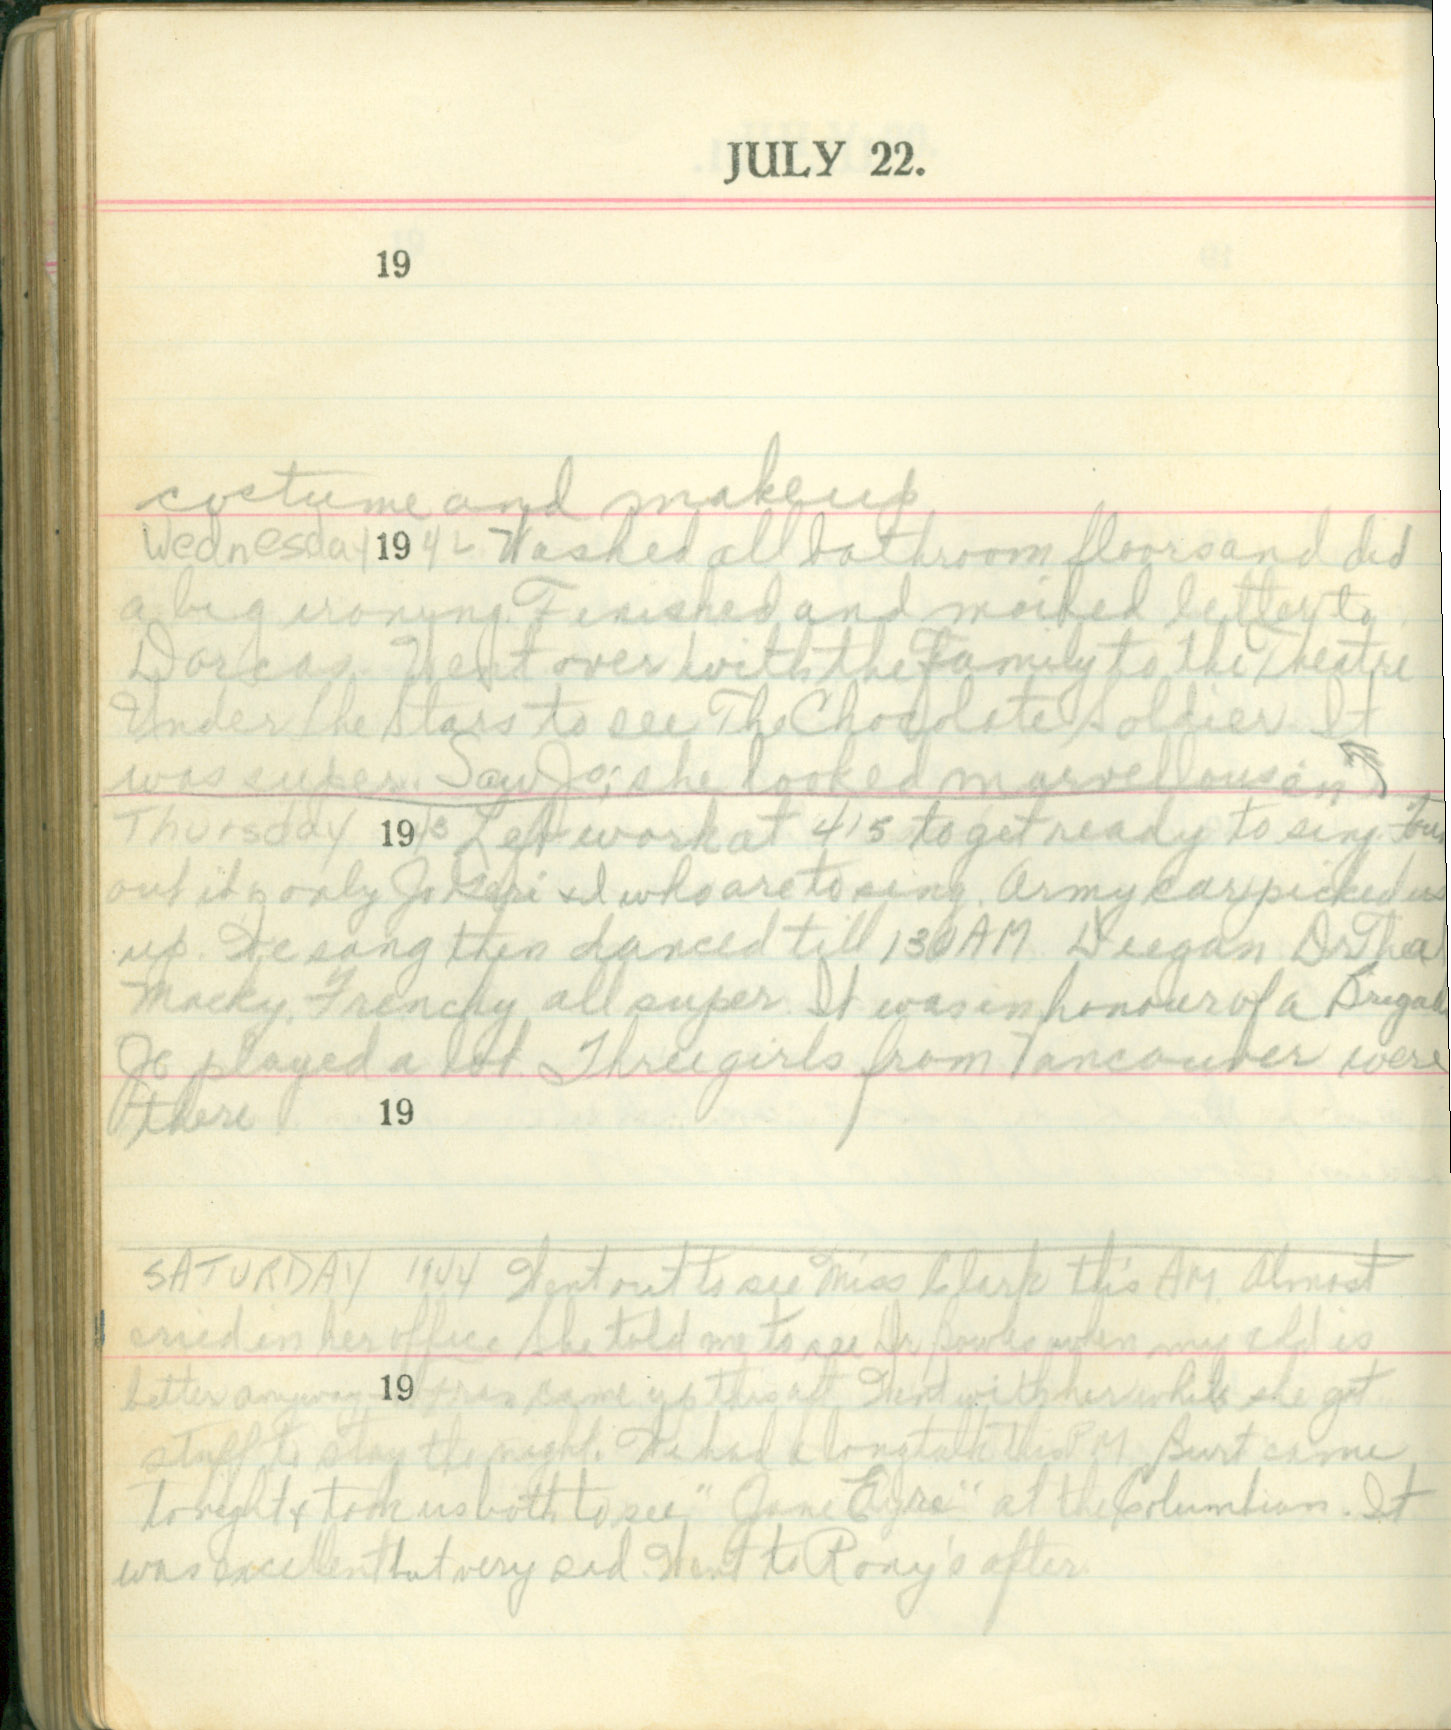 JULY 22.
19
costume and makeup
Wednesday 1942 Washed all bathroom floors and did
a big ironing. Finished and mailed letter to
Dorcas. Went over with the Family to the Theatre
Under the Stars to see The Chocolate Soldier. It
was super. Saw Jo; she looked marvellous in
Thursday 1943 Left work at 415 to get ready to sing.
out it is only Jo & I who are to sing. Army car picked us
up. We sang then danced till 130 AM. Deegan Dr
Macky, Frenchy all super. It was in honour of a
Jo played a lot. Three girls from Vancouver were
there
19
SATURDAY 1944 Went out to see Miss Clark this AM. Almost
cried in her office. She told me to see Dr when my cold is
better anyway. 19 came up this aft. Went with her while she got
stuff to stay the night. We had a long talk this PM. Burt came
tonight & took us both to see "Jane Eyre" at the Columbian. It
was excellent but very sad. Went to Rony's after